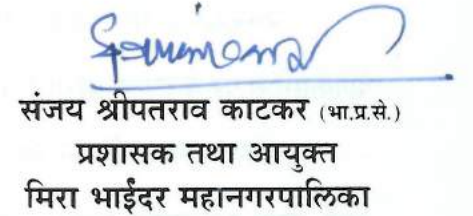 संजय श्रीपतराव काटकर (भा.प्र.से.)
प्रशासक तथा आयुक्त
मिरा भाईंदर महानगरपालिका